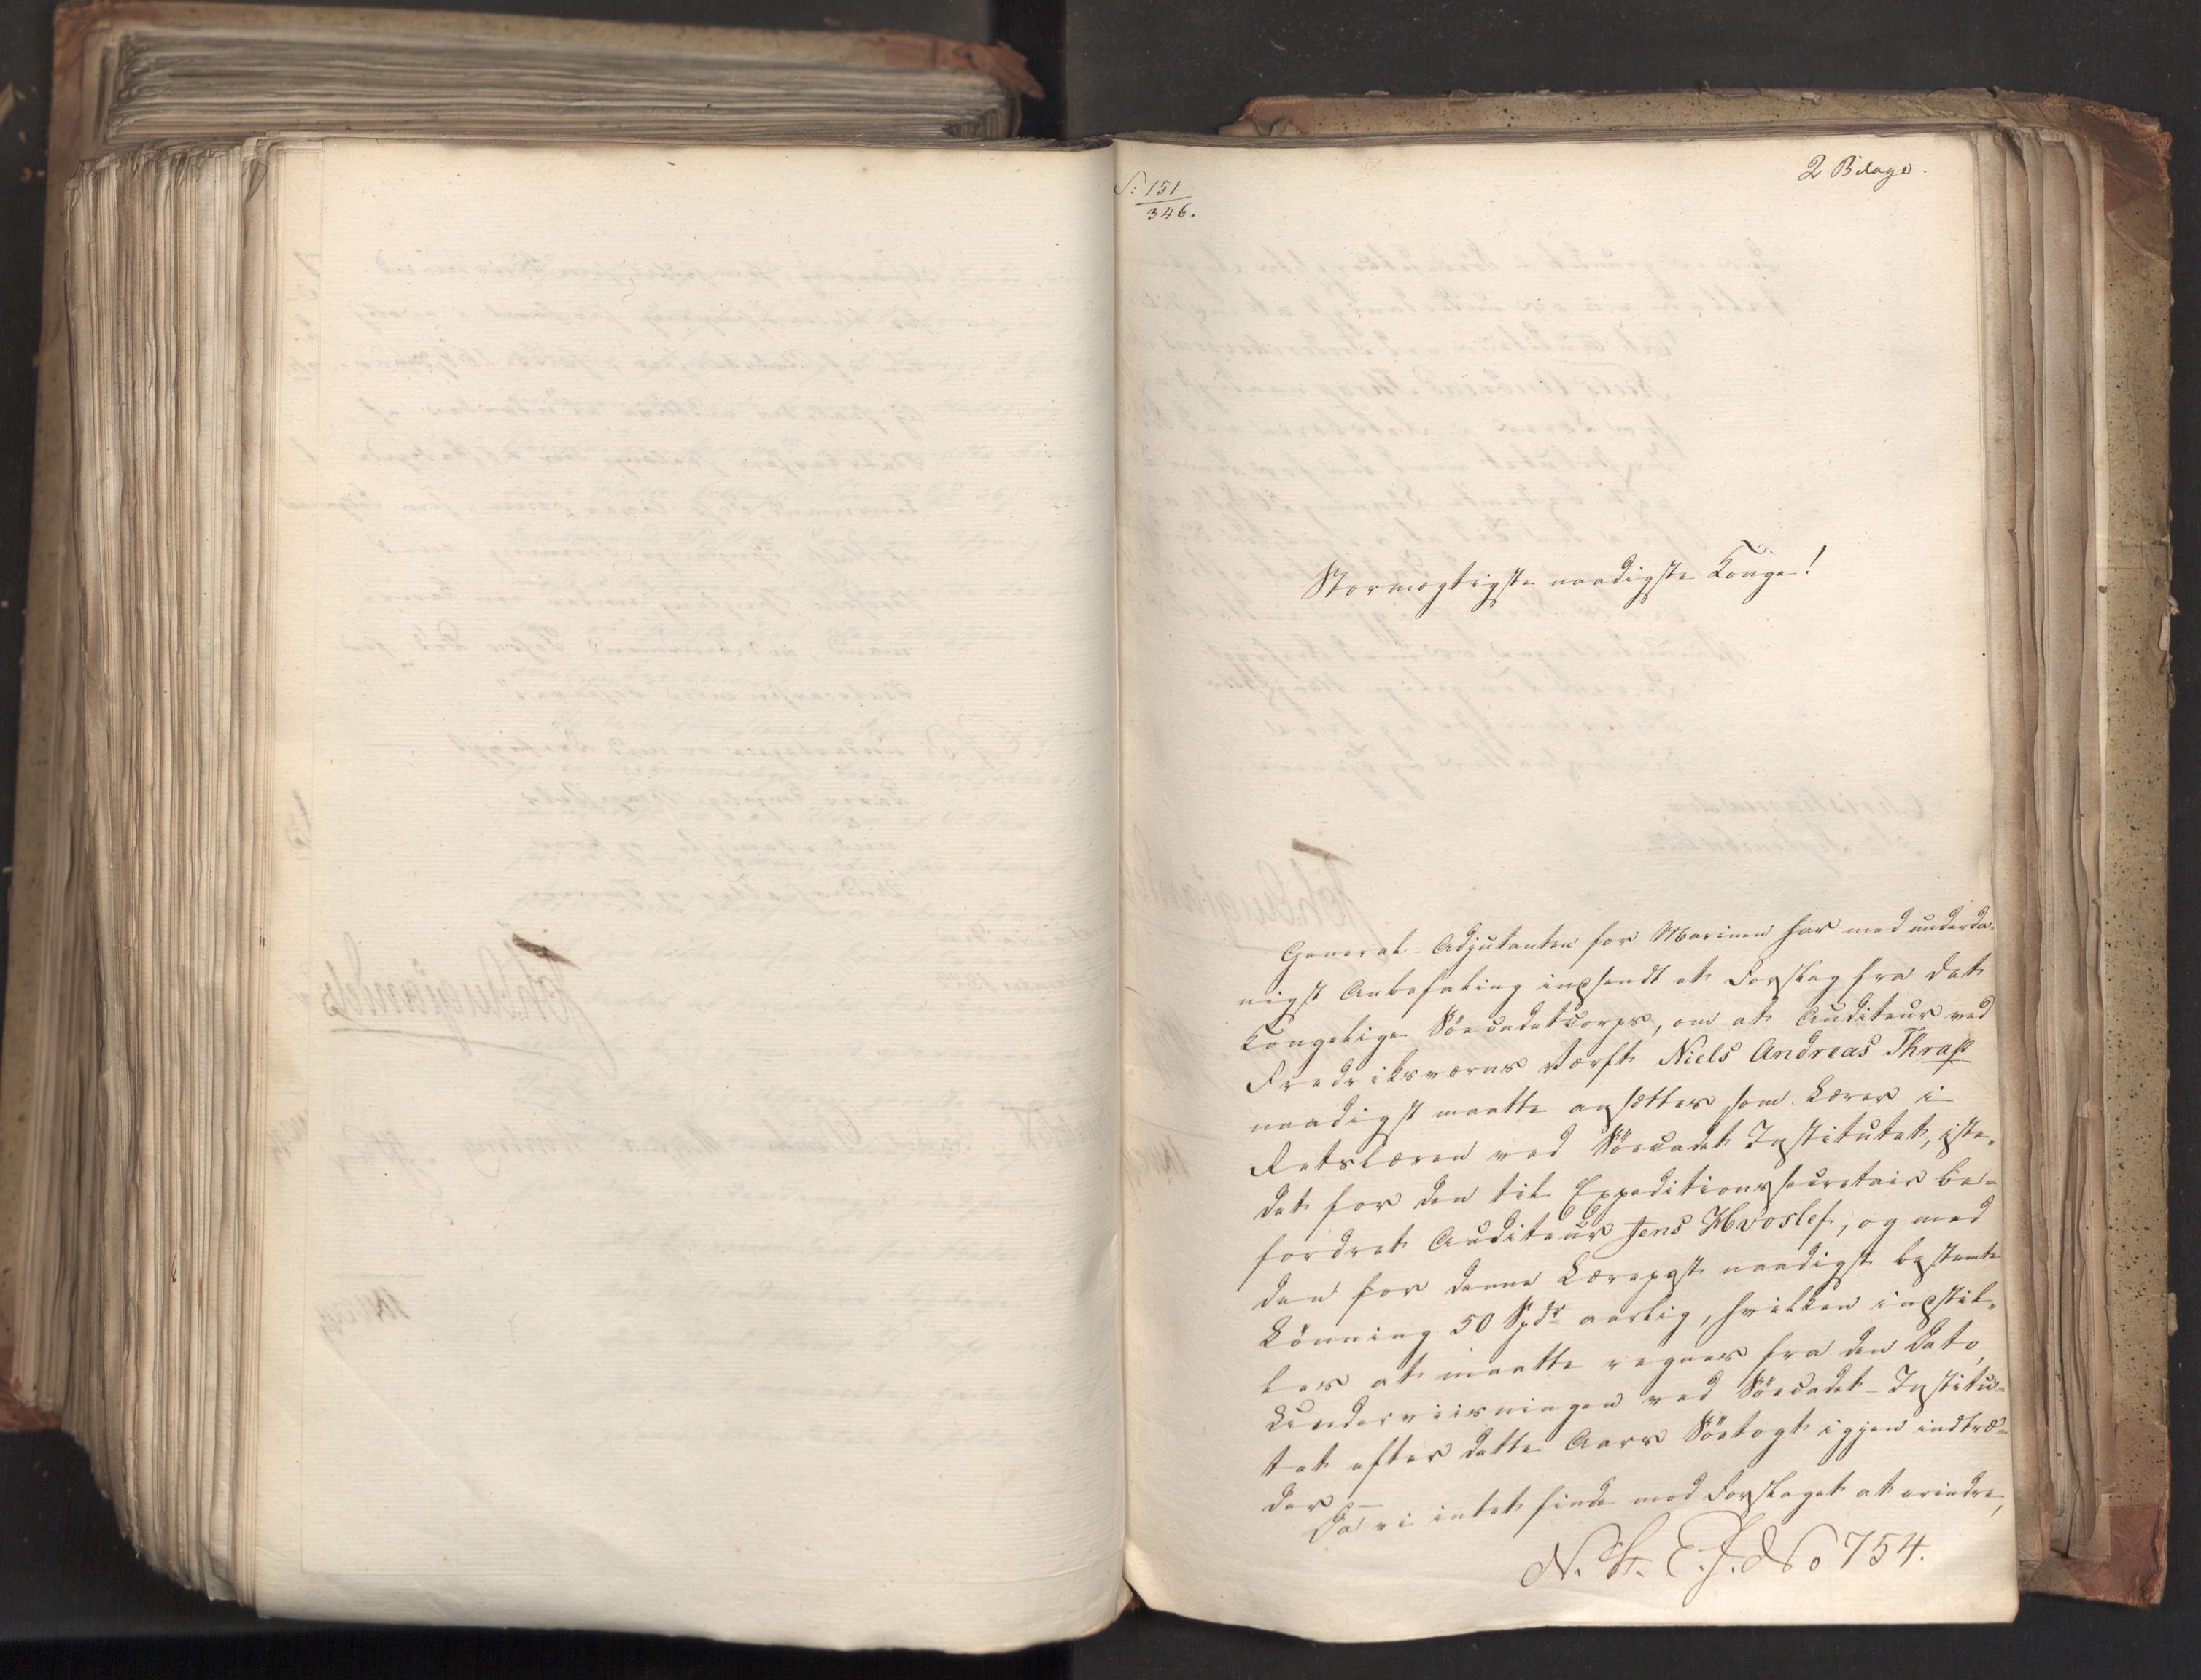 S: 151
346.
2 Bilage.
Stormægtigste naadigste Konge!
General-Adjutanten for Marinen har med underda-
nigst Anbefaling indsendt et Forslag fra det
Kongelige Söecadetcorps, om at Auditeur ved
Fredriksværns Værft Niels Andreas Thrap
naadigst maatte ansættes som Lærer i
Retslæren ved Söecadet Institutet, iste-
det for den til Expeditionssecretair be-
fordret Auditeur Jens Hvoslef, og med
den for denne Lærepost naadigst bestemte
Lönning 50 Spdr aarlig, hvilken indstil-
les at maatte regnes fra den Dato,
Underviisningen ved Söecadet-Institu-
tet efter dette Aars Söetogt igjen indtræ-
der.
Da vi intet finde mod Forslaget at erindre,
N. St. E. J. No 754.